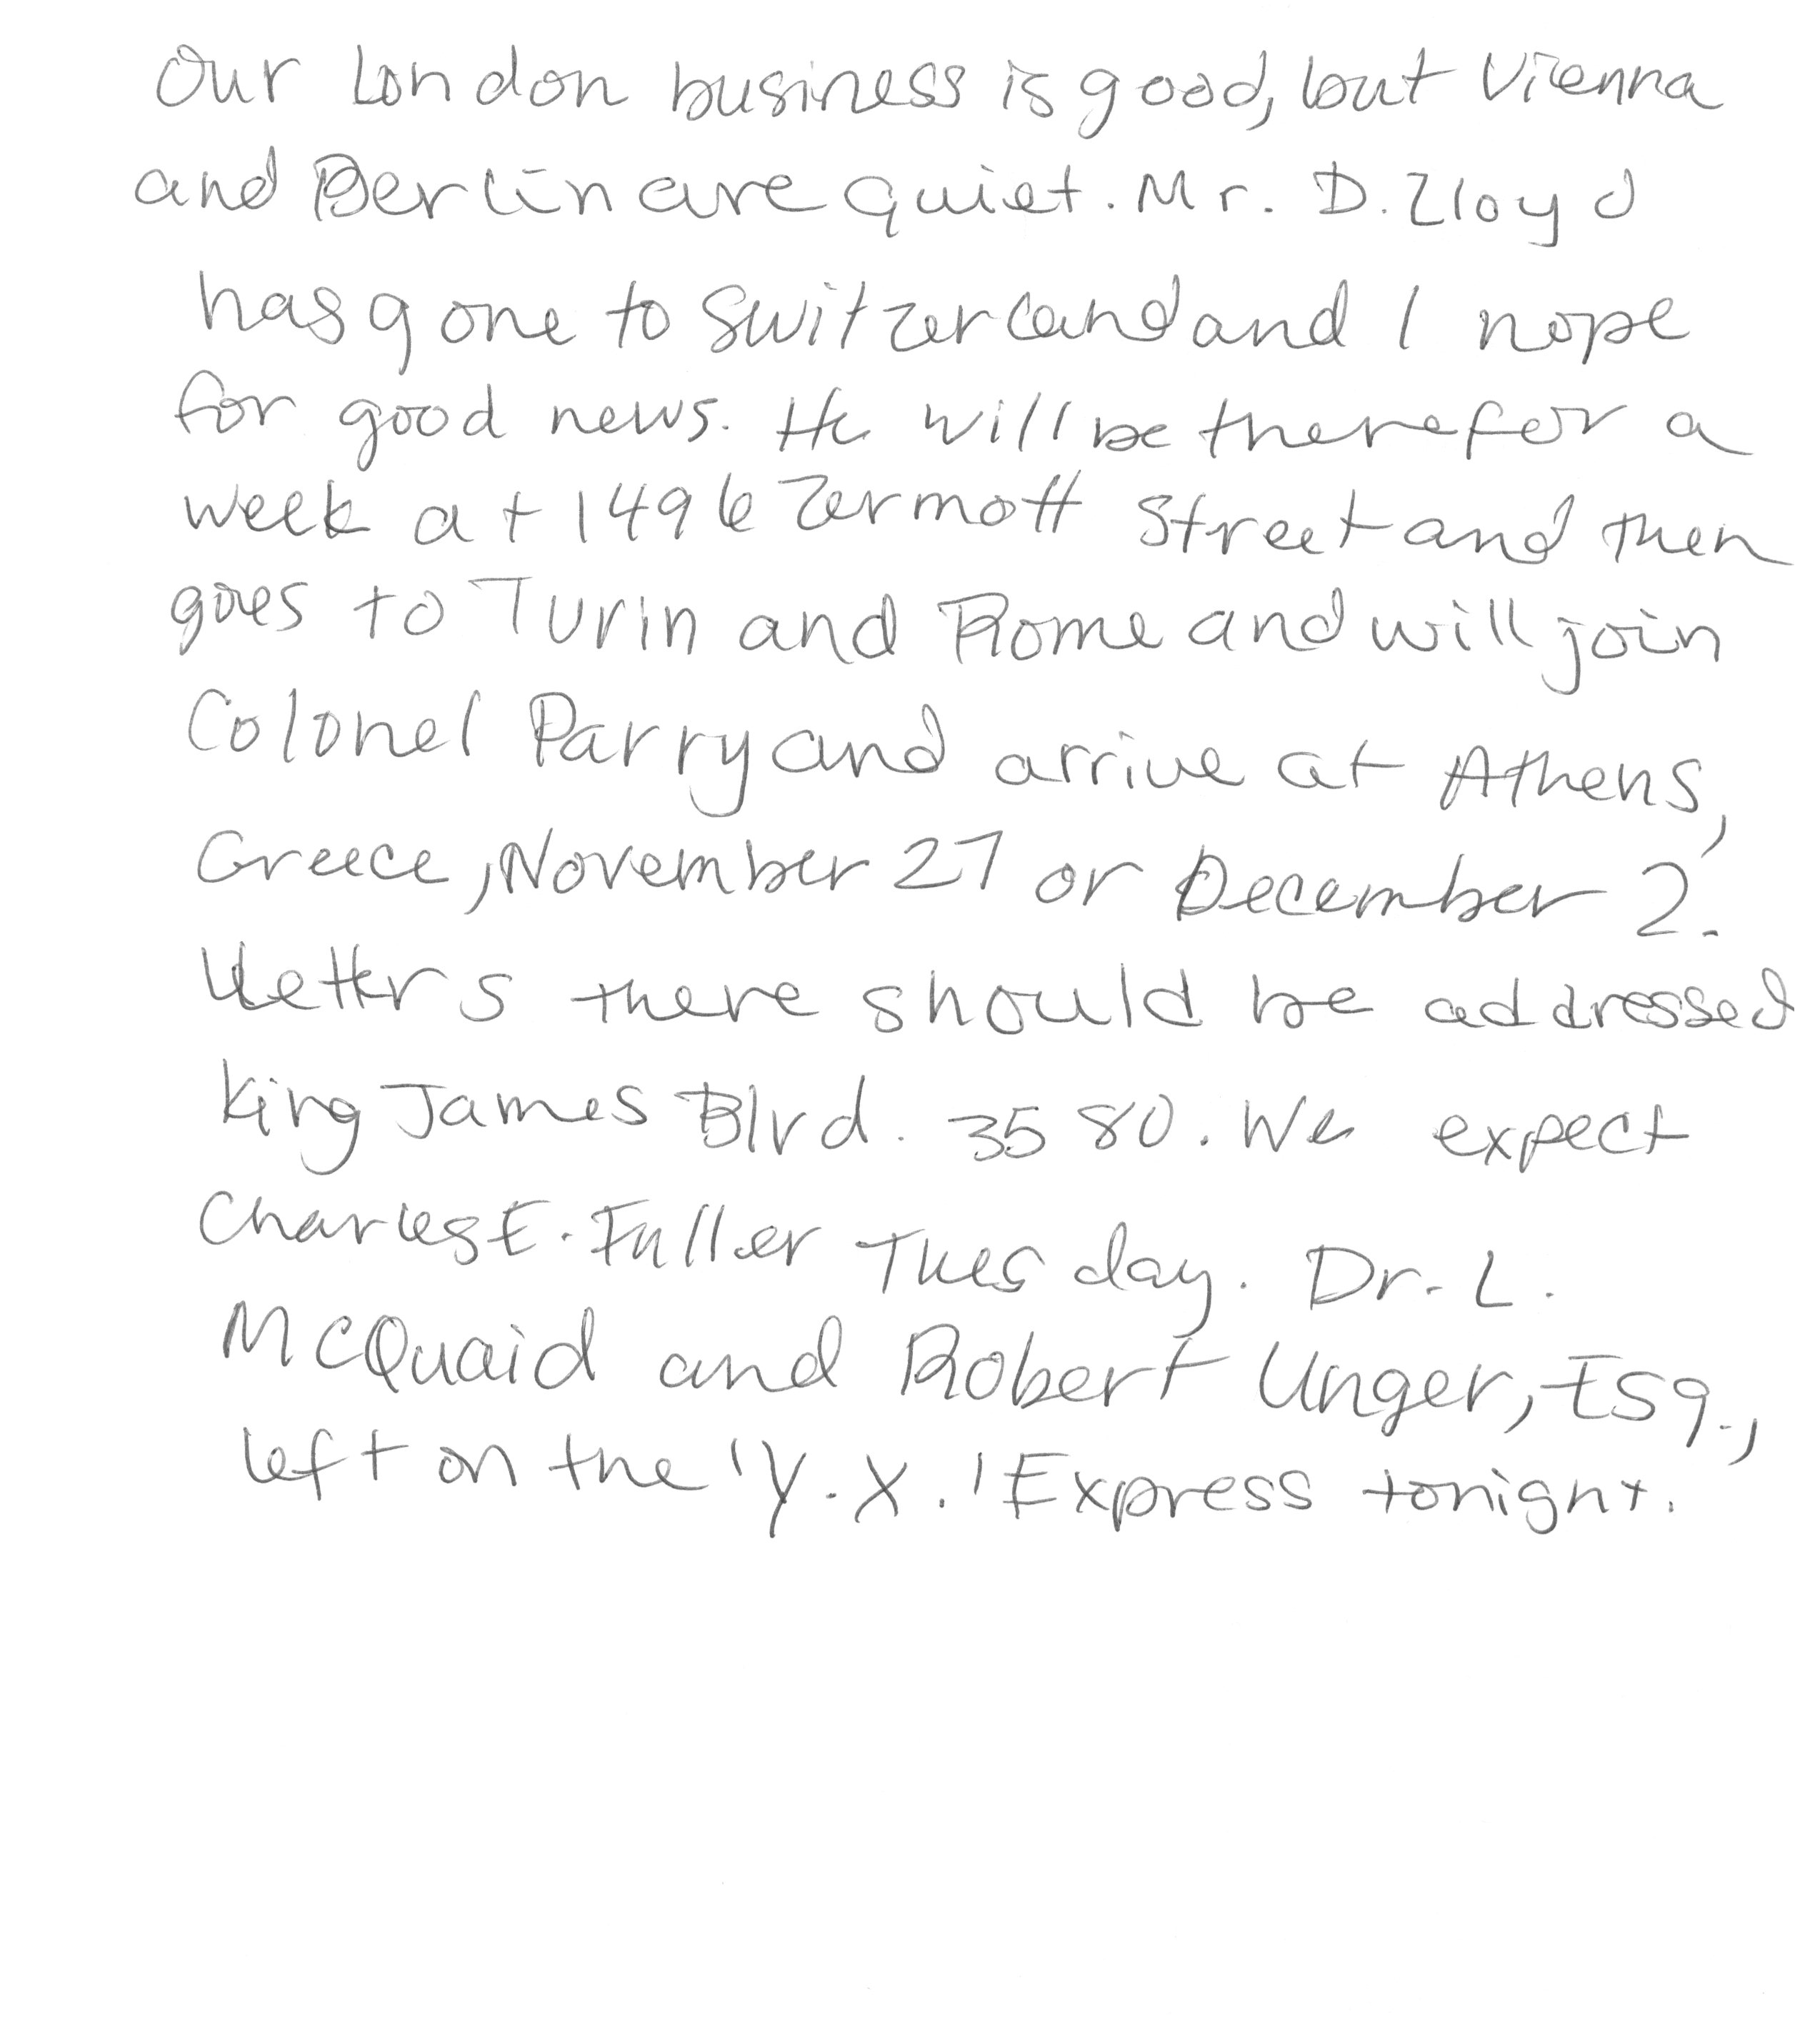 Our London business is good, but Vienna
and Berlin are quiet. Mr. D. Lloyd
has gone to Switzerland and I hope
for good news. He will be there for a
week at 1496 Zermott Street and then
goes to Turin and Rome and will join
Colonel Parry and arrive at Athens,
Greece, November 27 or December 2.
Letters there should be addressed
King James Blvd. 3580. We expect
Charles E. Fuller Tuesday. Dr. L.
McQuaid and Robert Unger, Esq.,
left on the 'Y.X.' Express tonight.